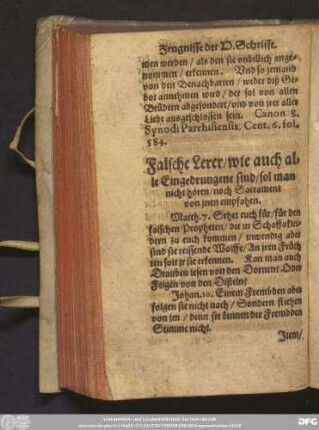 Zeugnisse der V. Schrifft.
men werden / als den sie vnbillich ange-
nommen / erkennen. Vnd so jemand
von den Benachbarten / wider diß Ge-
bot annehmen wird / der sol von allen
Brüdern abgesondert / vnd von jrer aller
Liebe ausgeschlossen sein. Canon 8.
Synodi Parrhisiensis. Cent. 6. fol.
584.
Falsche Lerer / wie auch al-
le Eingedrungene sind / sol man
nicht hören / noch Sacrament
von jnen empfahen.
Matth. 7. Sehet euch für / für den
falschen Propheten / die in Schaffsklei-
dern zu euch kommen / inwendig aber
sind sie reissende Wolffe / An jren Früch
ten solt jr sie erkennen. Kan man auch
Drauben lesen von den Dornen? Oder
Feigen von den Disteln?
Johan. 10. Einem Frembden aber
folgen sie nicht nach / Sondern fliehen
von jm / denn sie kennen der Frembden
Stimme nicht.
Item /
DFG